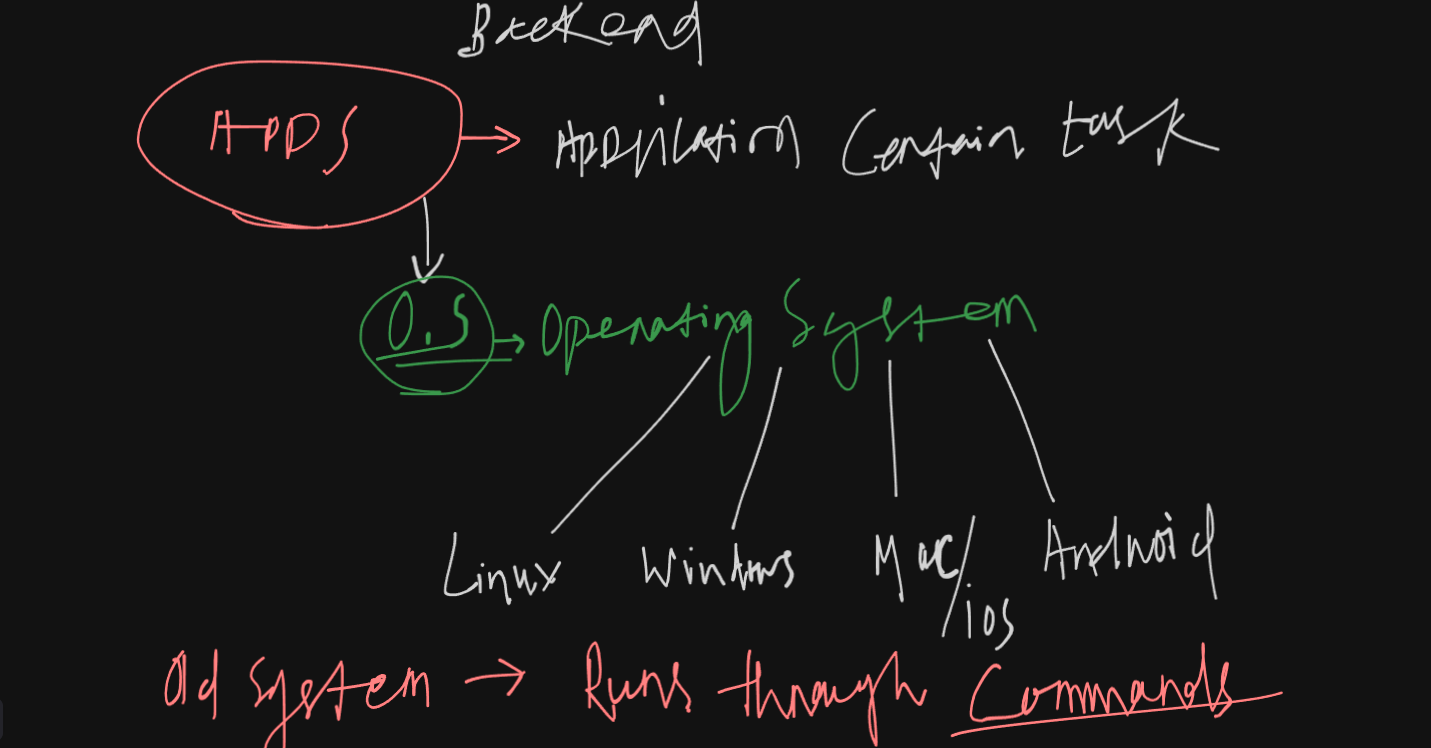 Backend
APPS → Application Contain task
O.S → Operating System
Linux Windows Mac/ios Android
Old System → Runs through Commands